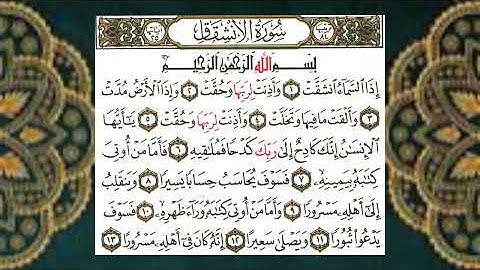 ترتيبها ٨٤ سُورَةُ الِانْشِقَاقِ آياتها ٢٥
بِسْمِ اللَّهِ الرَّحْمَٰنِ الرَّحِيمِ
إِذَا السَّمَاءُ انشَقَّتْ ١ وَأَذِنَتْ لِرَبِّهَا وَحُقَّتْ ٢ وَإِذَا الْأَرْضُ مُدَّتْ
٣ وَأَلْقَتْ مَا فِيهَا وَتَخَلَّتْ ٤ وَأَذِنَتْ لِرَبِّهَا وَحُقَّتْ ٥ يَٰأَيُّهَا
الْإِنسَٰنُ إِنَّكَ كَادِحٌ إِلَىٰ رَبِّكَ كَدْحًا فَمُلَٰقِيهِ ٦ فَأَمَّا مَنْ أُوتِيَ
كِتَٰبَهُ بِيَمِينِهِ ٧ فَسَوْفَ يُحَاسَبُ حِسَابًا يَسِيرًا ٨ وَيَنقَلِبُ
إِلَىٰ أَهْلِهِ مَسْرُورًا ٩ وَأَمَّا مَنْ أُوتِيَ كِتَٰبَهُ وَرَاءَ ظَهْرِهِ ١٠ فَسَوْفَ
يَدْعُوا ثُبُورًا ١١ وَيَصْلَىٰ سَعِيرًا ١٢ إِنَّهُ كَانَ فِي أَهْلِهِ مَسْرُورًا ١٣